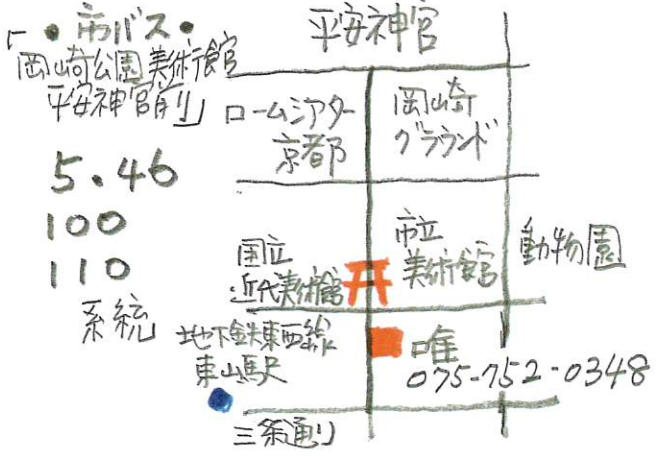 ・市バス・
「岡崎公園美術館
平安神宮前」
5・46
100
110
系統
平安神宮
ロームシアター
京都
岡崎
グラウンド
国立
近代美術館
市立
美術館
動物園
地下鉄東西線
東山駅
唯
075-752-0348
三条通り